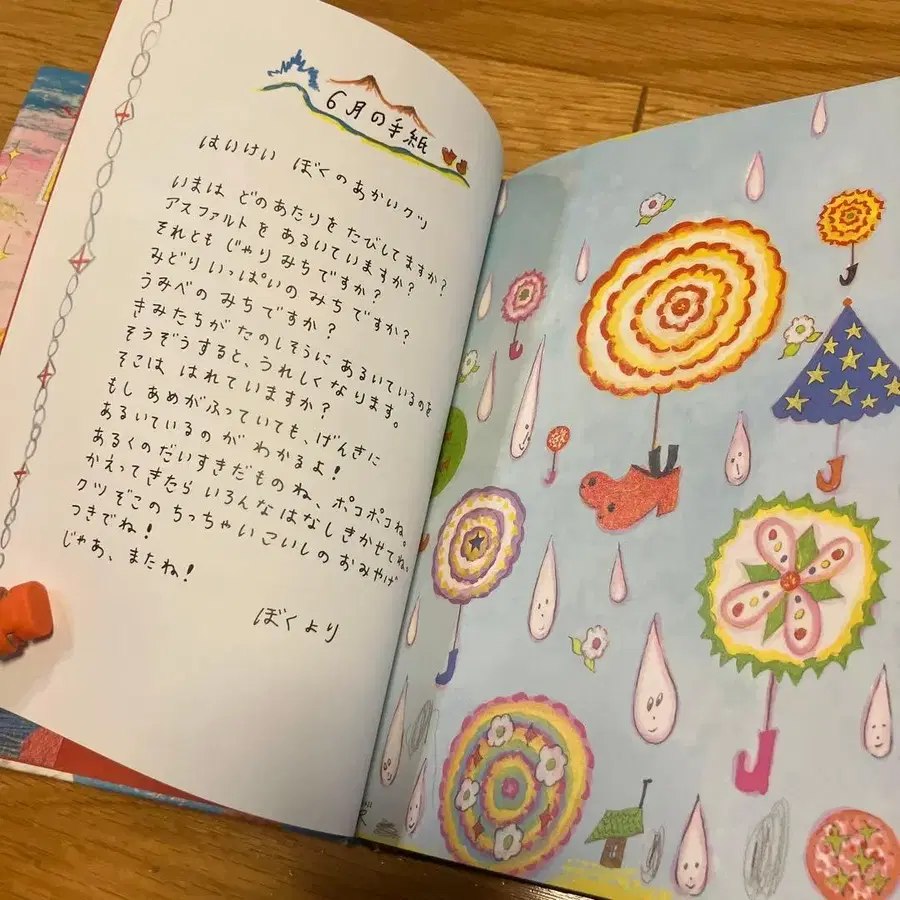 6月の手紙
はいけい ぼくのあかいクツ
いまは どのあたりを たびしてますか?
アスファルトを あるいていますか?
それとも じゃりみちですか?
みどりいっぱいの みち ですか?
うみべの みちですか?
きみたちが たのしそうに あるいているのを
そうぞうすると、うれしくなります。
そこは はれていますか?
もし あめがふっていても、げんきに
あるいているの が わかるよ!
あるくのだいすきだものね、ポコポコね。
かえってきたら いろんなはなしきかせてね。
クツぞこの ちっちゃい こいしの おみやげ
つきでね!
じゃあ、またね!
ぼくより